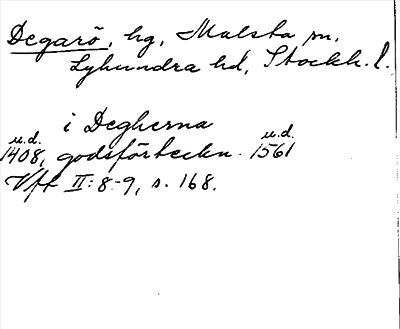 Degarö, hg, Malsta sn,
Lyhundra hd, Stockh. l.
i Degherna
u.d. u.d.
1408, godsförteckn. 1561
Vft II: 8-9, s. 168.